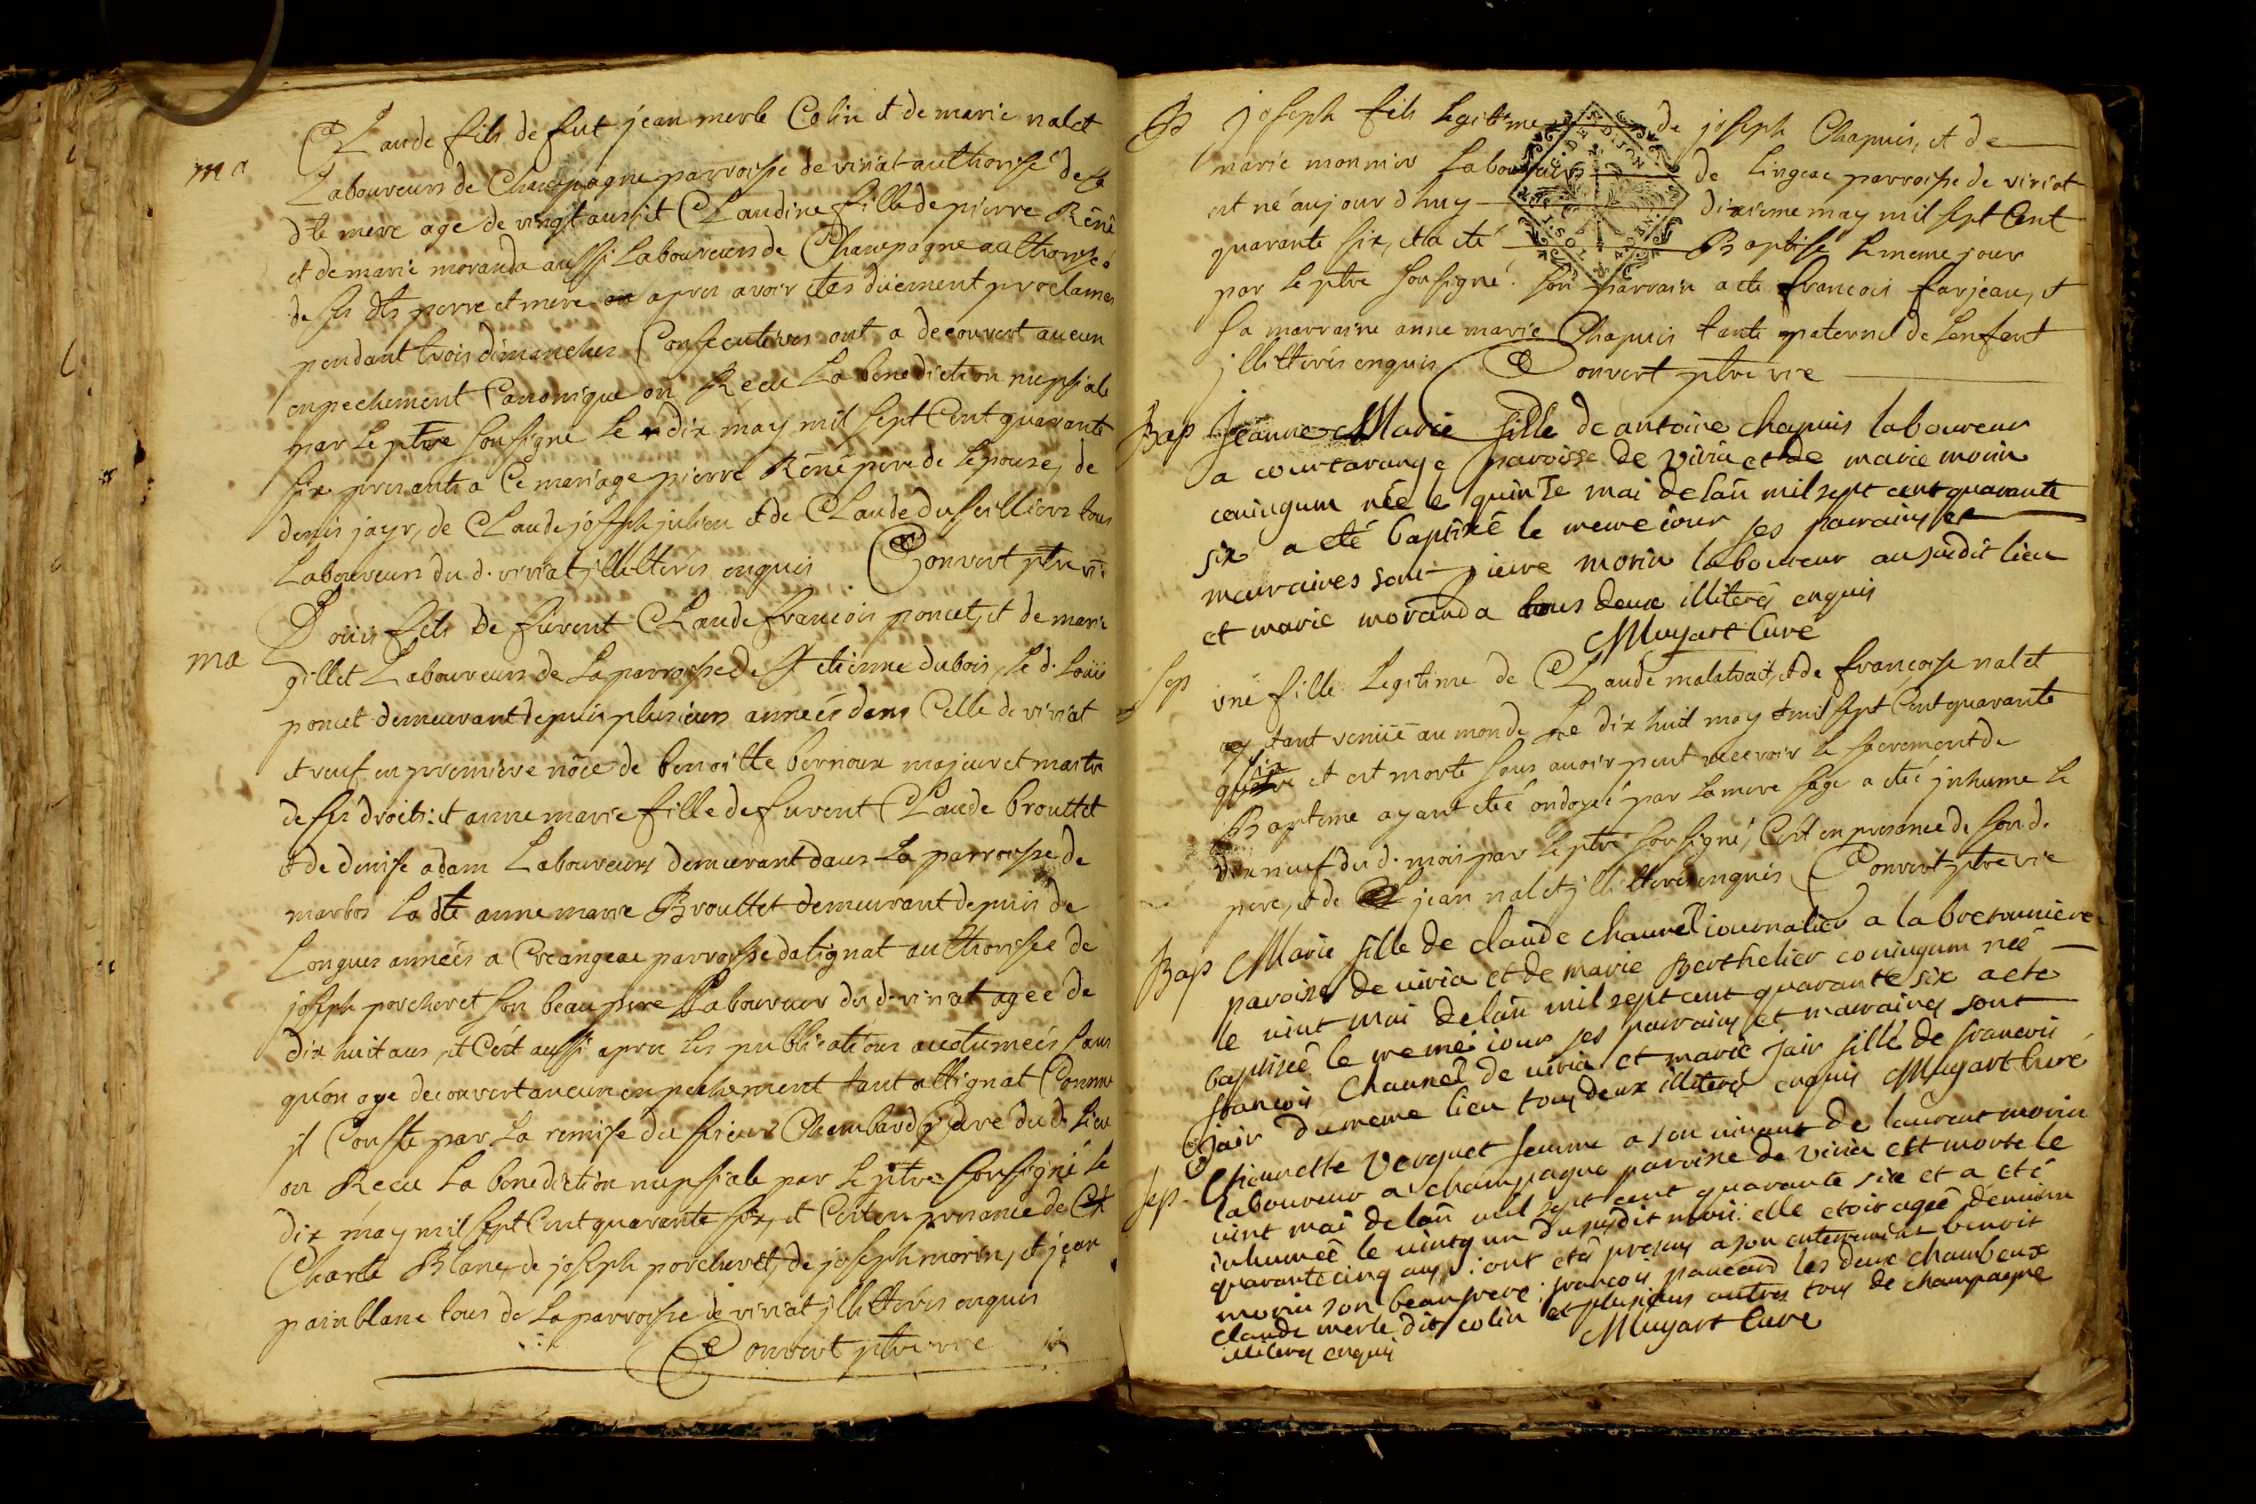 ma
Claude fils de fut jean merle Colin et de marie nalet
Laboureurs de Champagne parroisse de viriat authorisé de sa
dte mere agé de vingt ans, et Claudine fille de pierre Réné
et de marie moranda aussi Laboureurs de Champagne authorisée
de ses dts perre et mere apres avoir étés düement proclames
pendant trois dimanches Consecutives ont a decouvert aucun
enpechement Canonique on Reçu La benediction nupsiale
par le ptre sousigné le dix may mil sept Cent quarante
six presants a Ce mariage pierre Réné pere de Lepouse, de
denis jayr, de Claude joseph julien et de Claude dufeilliers tous
Laboureurs du d. viriat jllitterés enquis Convert ptre vie
ma
Loüis fils de furent Claude francois poncet, et de marie
gillet Laboureurs de La parroisse de St etienne dubois, Le d. Loüis
poncet demeurant depuis plusieurs années dans Celle de viriat
et veuf en premiere nôce de benoitte bernoux majeur et maitre
de ses droits: et anne marie fille de furent Claude brouttet
et de denise adam Laboureurs demeurant dans La parroisse de
marbos La dte anne marie Brouttet demeurant depuis de
Longues années a Creangeac parroisse datignat authorisée de
joseph porcheret son beau pere Laboureur du d. viriat agée de
dix huit ans, et C'ést aussi apres les publications acotumeés sans
qu'on aye decouvert aucun enpechement tant attignat Comme
jl Conste par La remise du sieur Chambard Cure du d. Lieu
on Reçu La benediction nupsiale par le ptre sousigné le
dix may mil sept Cent quarante six, et C'est en presance de
Charle Blanc, de joseph porcheret, de joseph morin, et jean
painblanc tous de La parroisse de viriat jllitterés enquis
Convert ptre vie
B
joseph fils legitime de joseph Chapuis, et de
marie monnier Laboureurs de Lingeac parroisse de viriat
est né aujourdhuy dixieme may mil sept Cent
quarante six, et a eté Baptisé le meme jour
par le ptre sousigné. son parrain a eté francois farjeau, et
sa marraine anne marie Chapuis tante paternel de Lenfant
jllitterés enquis Convert ptre vie
Bap
Jeanne Marie fille de antoine chapuis laboureur
a courtarange paroisse de viria et de marie morin
coniugum née le quinze mai de lan mil sept cent quarante
six a eté baptisé le meme iour ses parains et
maraines sont pierre morin laboureur au sudit lieu
et marie moranda tous deux illiterés enquis
Muyart Curé
Sep
une fille Legitime de Claude malatrait, et de françoise nalet
etant venüe au monde le dix huit may mil sept Cent quarante
six et est morte sans avoir peut recevoir le sacrement de
Bapteme ayant eté ondoyeé par La mere sage a eté jnhumé le
dix neuf du d. mois par le ptre sousigné, C'ést en presance de son d.
pere, et de jean nalet jllitterés enquis Convert ptre vie
Bap
Marie fille de claude chaunel iournalier a la bretouniere
paroisse de viria et de marie Berthelier coniugum née
le vint mai de lan mil sept cent quarante six a ete
baptisée le meme iour ses parains et maraines sont
francois chaunel de viria et marie Jair fille de francois
Jair du meme lieu tous deux illiterés enquis Muyart Curé
Sep
Thienette Verguet femme a son vivant de laurent morin
laboureur a champagne paroisse de viria est morte le
vint mai de lan mil sept cent quarante six et a eté
inhumée le vintg un du susdit mois. elle etoit agée denviron
quarante cinq ans, ont eté presens a son enterrement benoit
morin son beau frere, francois paucard les deux chambeux
claude merle dit colin et plusieurs autres tous de champagne
illiterés enquis Muyart Cure